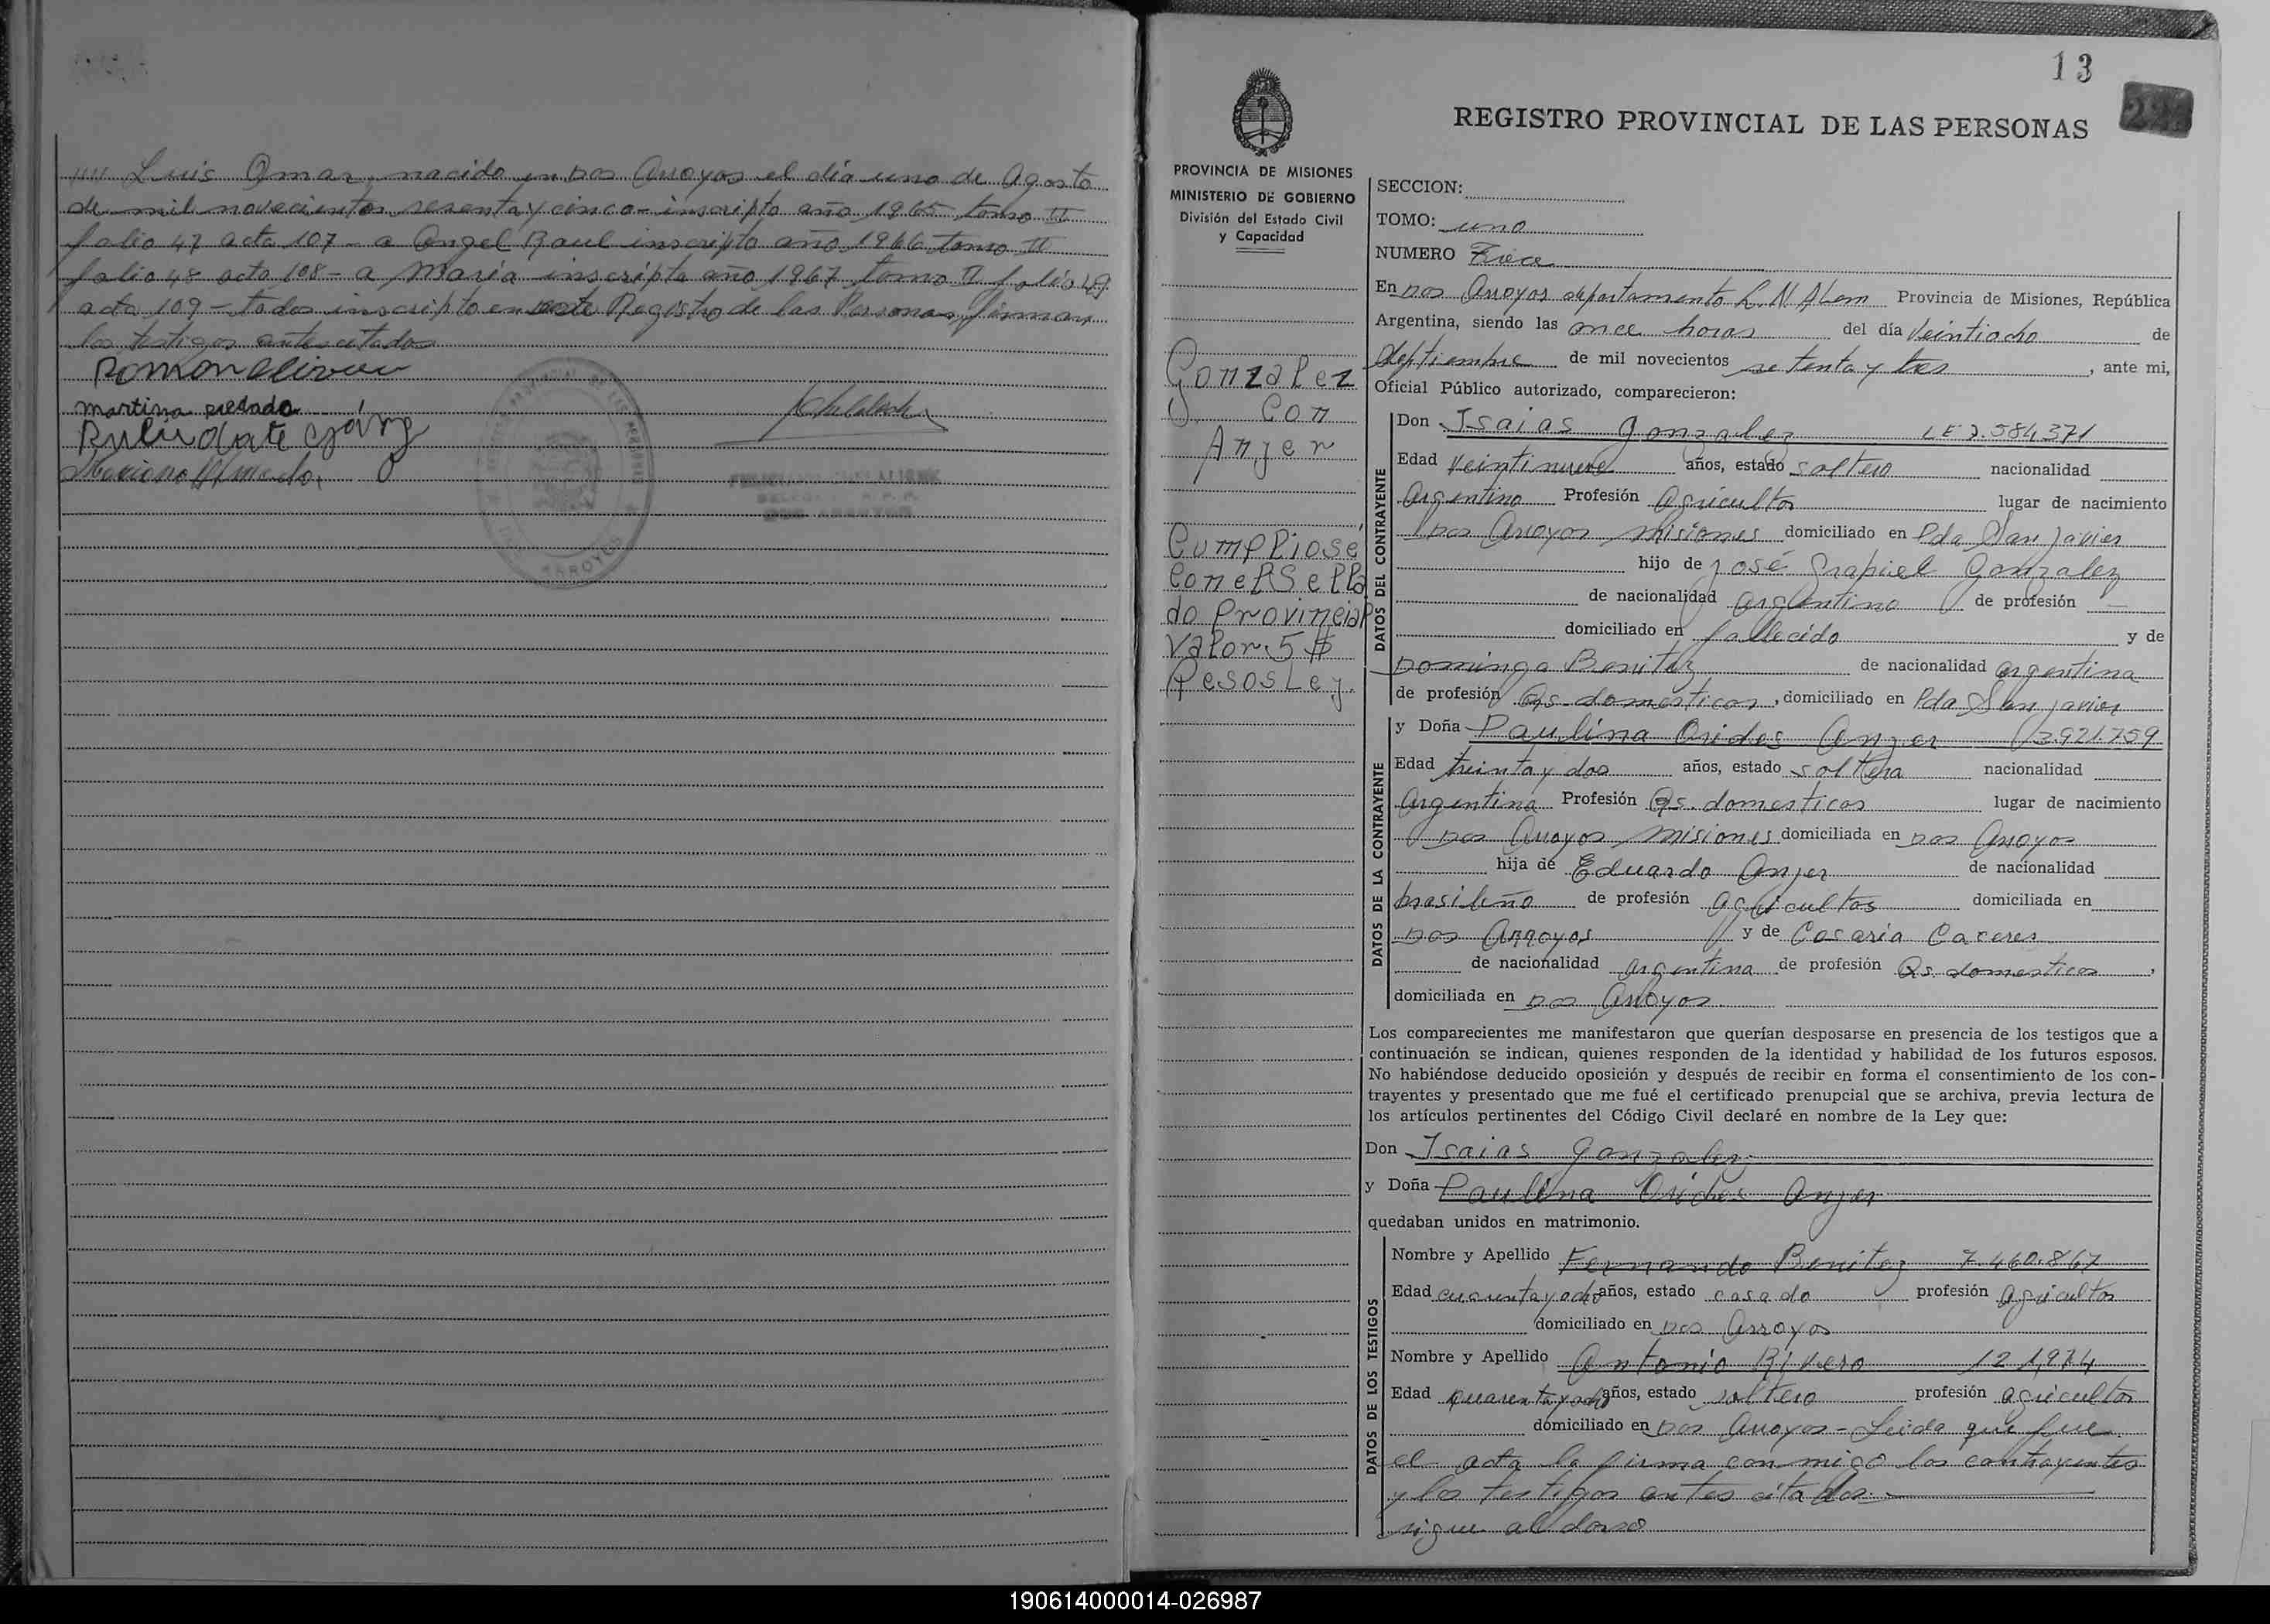 //// Luis Omar, nacido en Dos Arroyos el día uno de Agosto
de mil novecientos sesenta y cinco - inscripto año 1965 tomo II
folio 47 acta 107 - a Angel Raul inscripto año 1966 tomo II
folio 48 acta 108 - a Maria inscripta año 1967 tomo II folio 49
acta 109 - todos inscripto en este Registro de las Personas, firman
los testigos antes citados
Martina
ARROYOS
13
REGISTRO PROVINCIAL DE LAS PERSONAS
PROVINCIA DE MISIONES
MINISTERIO DE GOBIERNO
División del Estado Civil
y Capacidad
Gonzalez
con
Anjer
Cumpliose
con el Sella
do Provincial
Valor 5 $
Pesos Ley.
SECCION:
TOMO: uno
NUMERO Trece
En Dos Arroyos departamento L. N. Alem Provincia de Misiones, República
Argentina, siendo las once horas del día Veintiocho de
Septiembre de mil novecientos setenta y tres, ante mi,
Oficial Público autorizado, comparecieron:
DATOS DEL CONTRAYENTE
Don Isaias Gonzalez LE 7.584.371
Edad Veintinueve años, estado soltero nacionalidad
Argentino Profesión Agricultor lugar de nacimiento
Dos Arroyos Misiones domiciliado en Pda San Javier
hijo de José Grabiel Gonzalez
de nacionalidad argentino de profesión —
domiciliado en fallecido y de
Dominga Benitez de nacionalidad argentina
de profesión Qs. domesticos, domiciliado en Pda San Javier
DATOS DE LA CONTRAYENTE
y Doña Paulina Orides Anjer 3.921.759
Edad treinta y dos años, estado soltera nacionalidad
Argentina Profesión Qs. domesticos lugar de nacimiento
Dos Arroyos Misiones domiciliada en Dos Arroyos
hija de Eduardo Anjer de nacionalidad
brasileño de profesión agricultor domiciliada en
Dos Arroyos y de Cosaria Caceres
de nacionalidad argentina de profesión Qs. domesticos,
domiciliada en Dos Arroyos
Los comparecientes me manifestaron que querían desposarse en presencia de los testigos que a
continuación se indican, quienes responden de la identidad y habilidad de los futuros esposos.
No habiéndose deducido oposición y después de recibir en forma el consentimiento de los con-
trayentes y presentado que me fué el certificado prenupcial que se archiva, previa lectura de
los artículos pertinentes del Código Civil declaré en nombre de la Ley que:
Don Isaias Gonzalez
y Doña Paulina Orides Anjer
quedaban unidos en matrimonio.
DATOS DE LOS TESTIGOS
Nombre y Apellido Fernando Benitez 7.460.867
Edad cuarenta y ocho años, estado casado profesión agricultor
domiciliado en Dos Arroyos
Nombre y Apellido Antonio Rivero 121,974
Edad quarenta y ocho años, estado soltero profesión agricultor
domiciliado en Dos Arroyos - Leida que fue
el acta la firma con migo los contrayentes
y los testigos antes citados. —
sigue al dorso
190614000014-026987